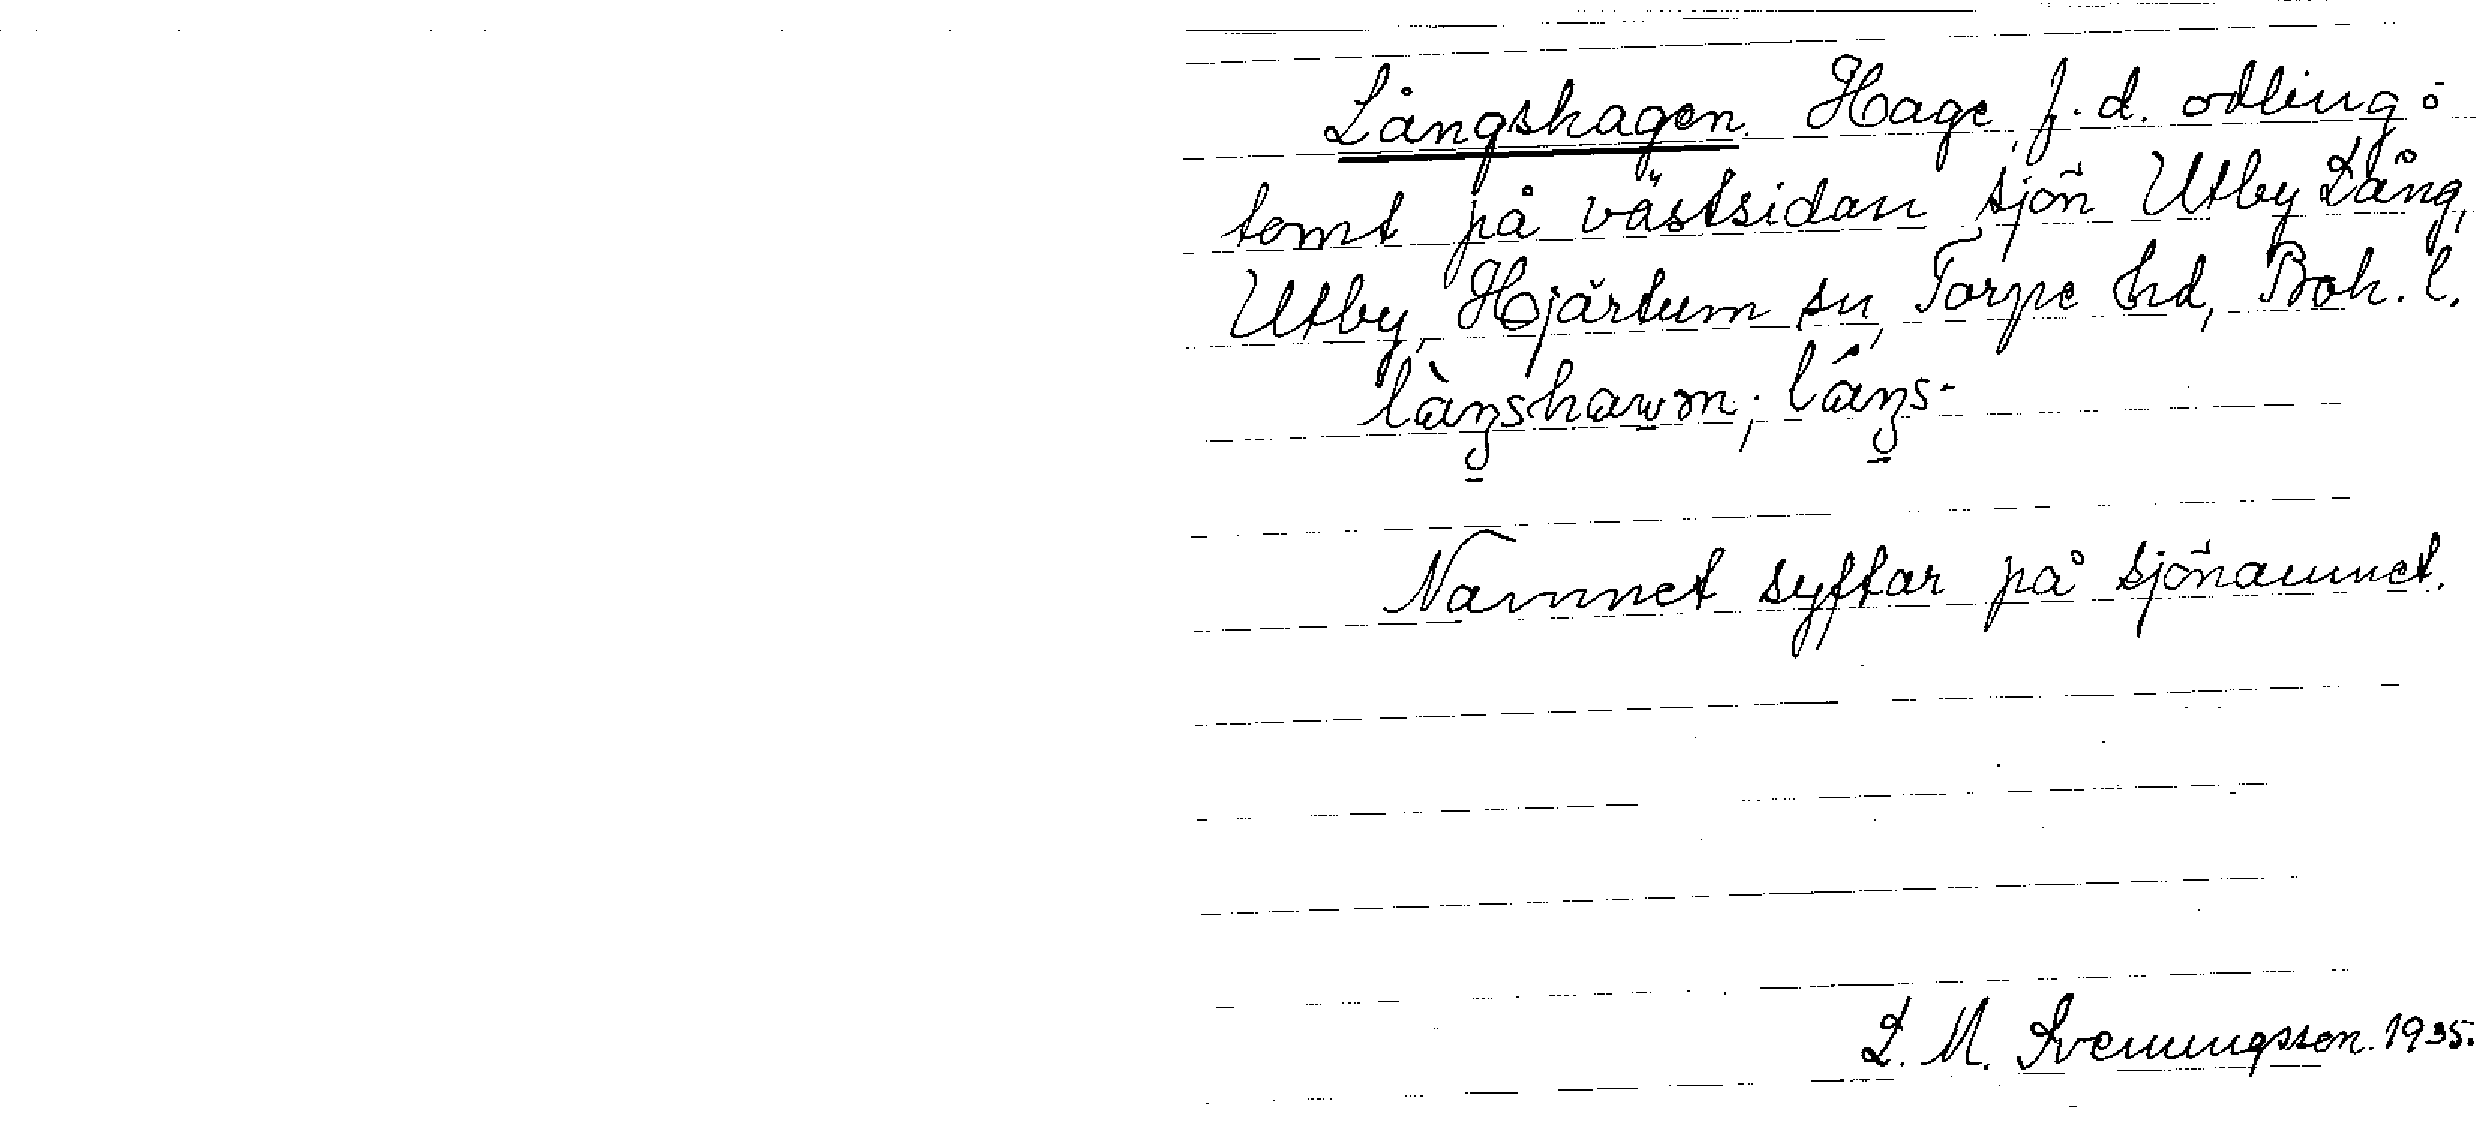 Långshagen. Hage, f.d. odling:
tomt på västsidan sjön Utby Lång,
Utby, Hjärtum sn, Torpe hd, Boh. l.
Namnet syftar på sjönamnet.
L. M. Svenungsson. 1935.